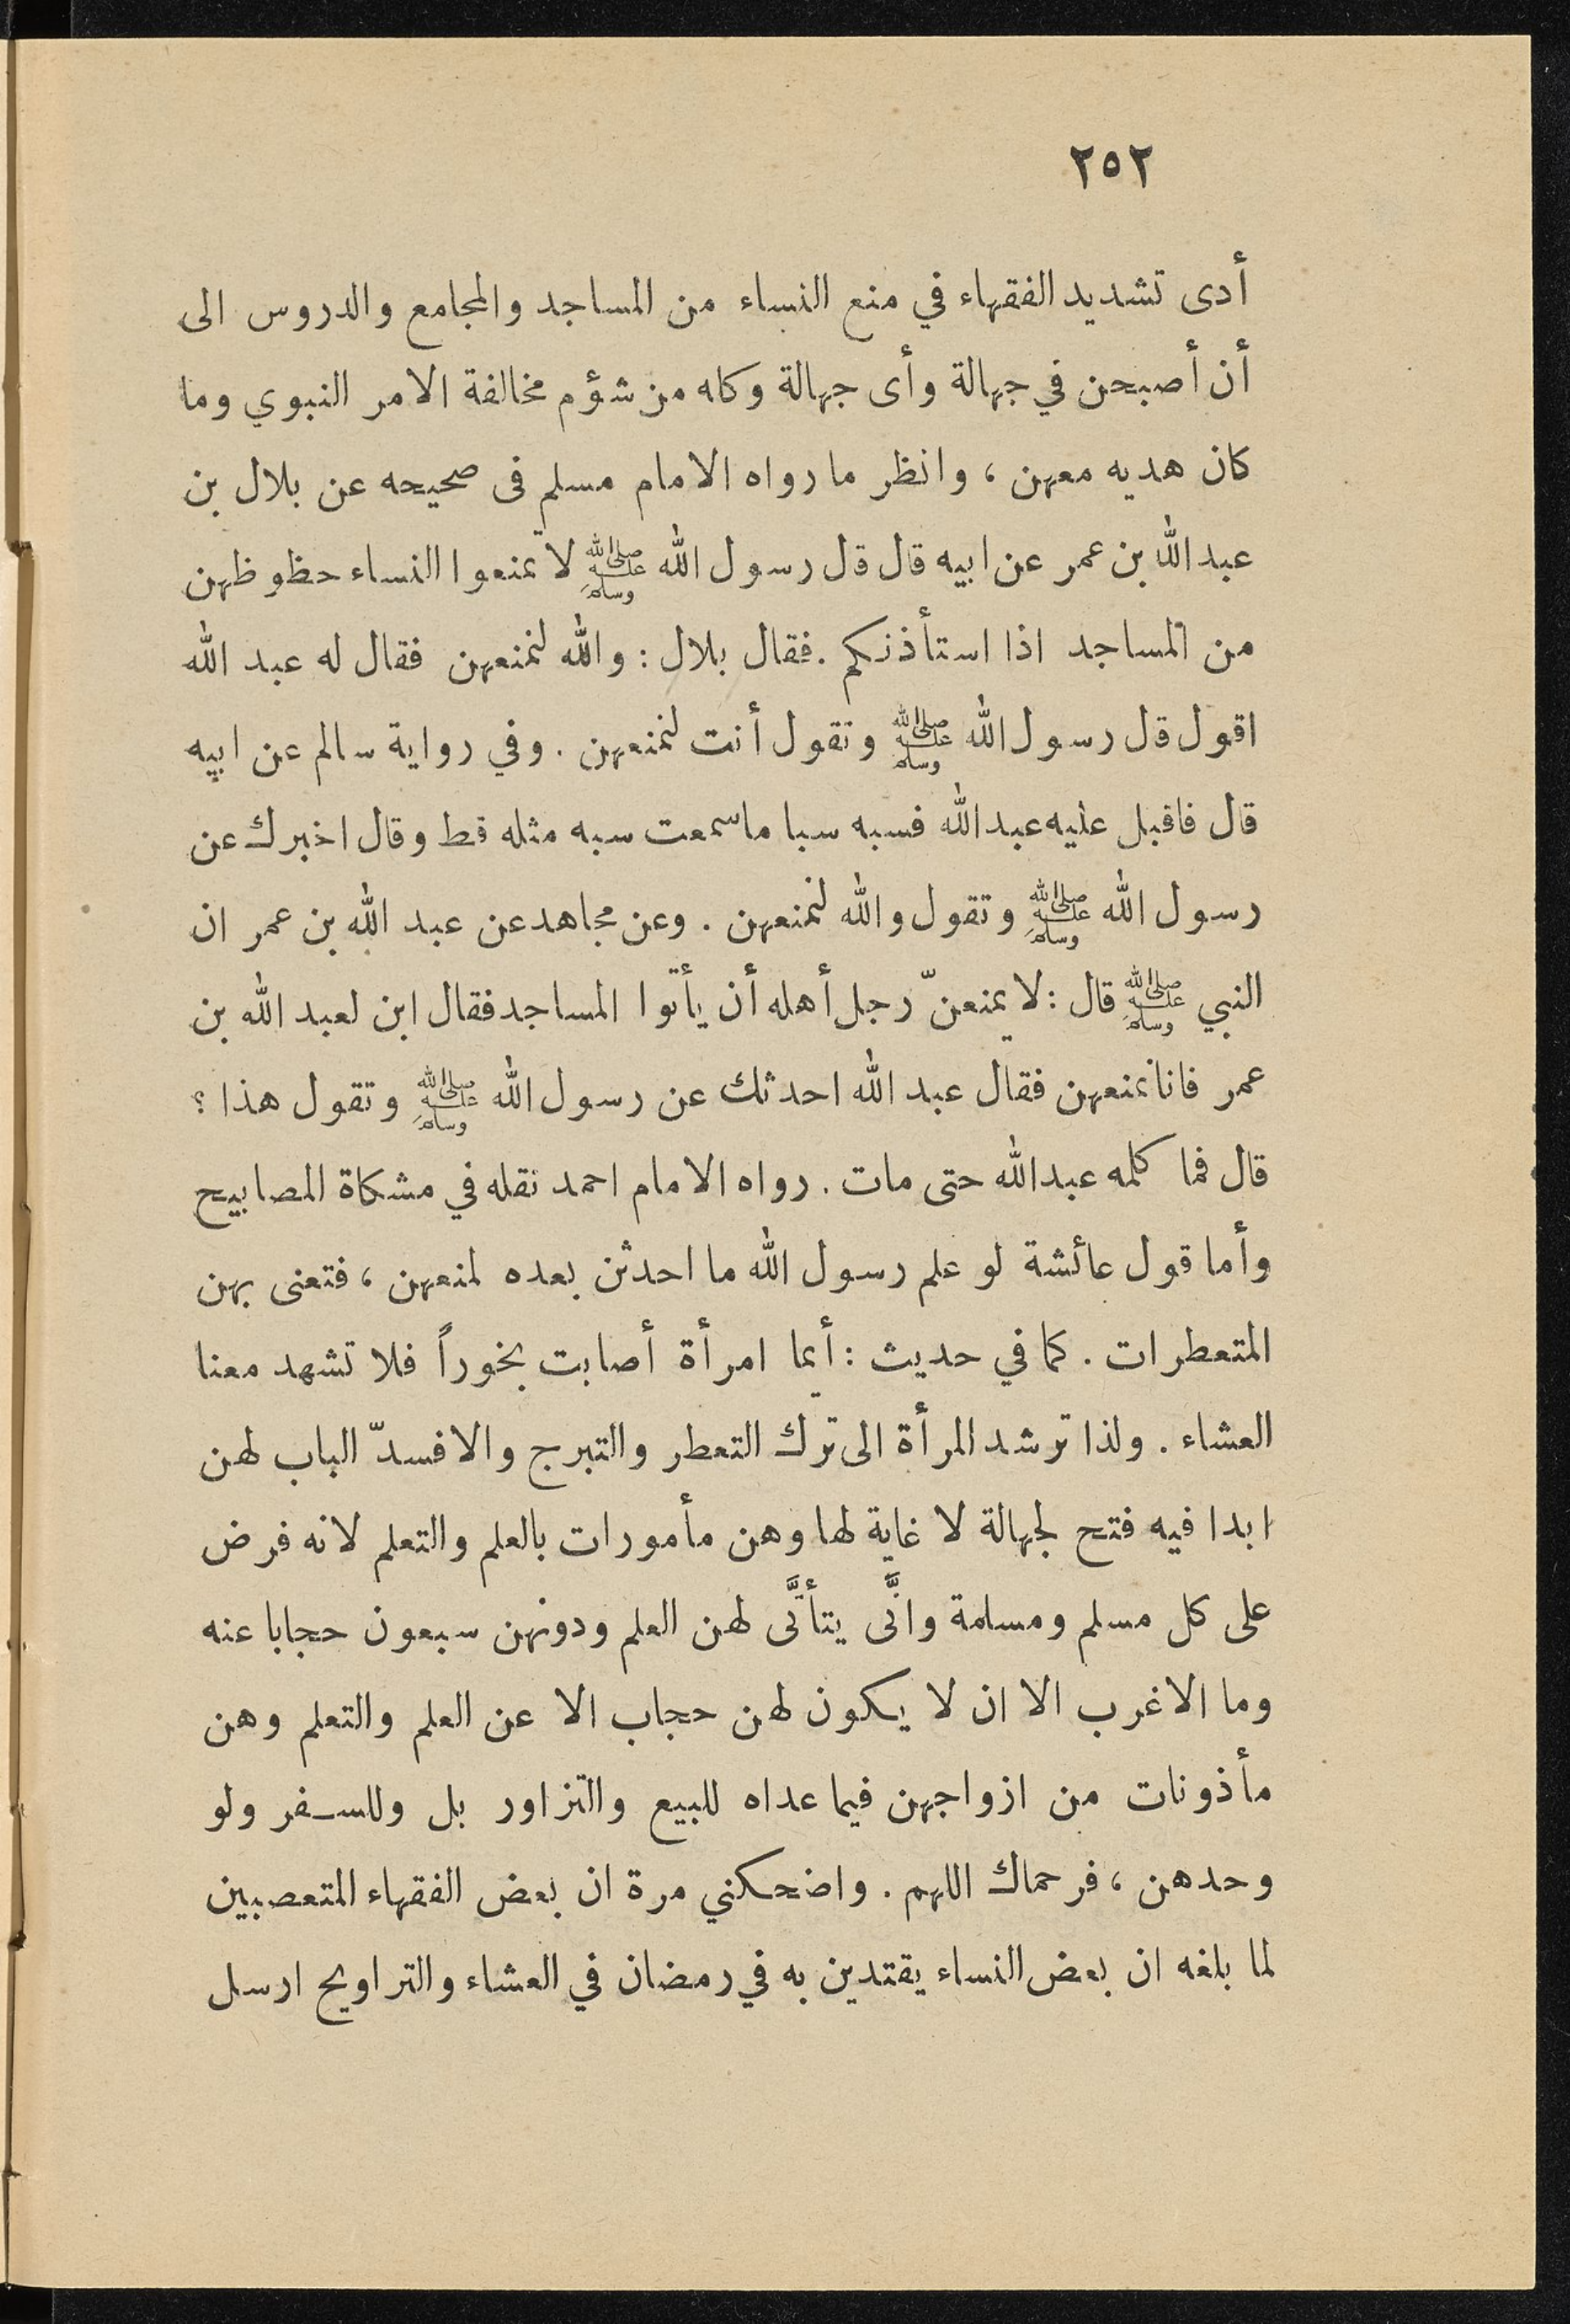 ٢٥٢
أدى تشديد الفقهاء في منع النساء من المساجد والمجامع والدروس الى
أن أصبحن في جهالة وأى جهالة وكله من شؤم مخالفة الامر النبوي وما
كان هديه معهن ، وانظر ما رواه الامام مسلم فى صحيحه عن بلال بن
عبد الله بن عمر عن ابيه قال قل رسول الله ﷺ لا تمنعوا النساء حظوظهن
من المساجد اذا استأذنكم . فقال بلال : والله لنمنعهن فقال له عبد الله
اقول قل رسول الله ﷺ وتقول أنت لنمنعهن . وفي رواية سالم عن ابيه
قال فاقبل عليه عبد الله فسبه سبا ما سمعت سبه مثله قط وقال اخبرك عن
رسول الله ﷺ وتقول والله لنمنعهن . وعن مجاهد عن عبد الله بن عمر ان
النبي ﷺ قال : لا يمنعنّ رجل أهله أن يأتوا المساجد فقال ابن لعبد الله بن
عمر فانا نمنعهن فقال عبد الله احدثك عن رسول الله ﷺ وتقول هذا ؟
قال فما كلمه عبد الله حتى مات . رواه الامام احمد نقله في مشكاة المصابيح
وأما قول عائشة لو علم رسول الله ما احدثن بعده لمنعهن ، فتعنى بهن
المتعطرات . كما في حديث : أيما امرأة أصابت بخوراً فلا تشهد معنا
العشاء . ولذا ترشد المرأة الى ترك التعطر والتبرج والا فسدّ الباب لهن
ابدا فيه فتح لجهالة لا غاية لها وهن مأمورات بالعلم والتعلم لانه فرض
على كل مسلم ومسلمة وانَّى يتأتَّى لهن العلم ودونهن سبعون حجابا عنه
وما الاغرب الا ان لا يكون لهن حجاب الا عن العلم والتعلم وهن
مأذونات من ازواجهن فيما عداه للبيع والتزاور بل وللسفر ولو
وحدهن ، فرحماك اللهم . واضحكني مرة ان بعض الفقهاء المتعصبين
لما بلغه ان بعض النساء يقتدين به في رمضان في العشاء والتراويح ارسل